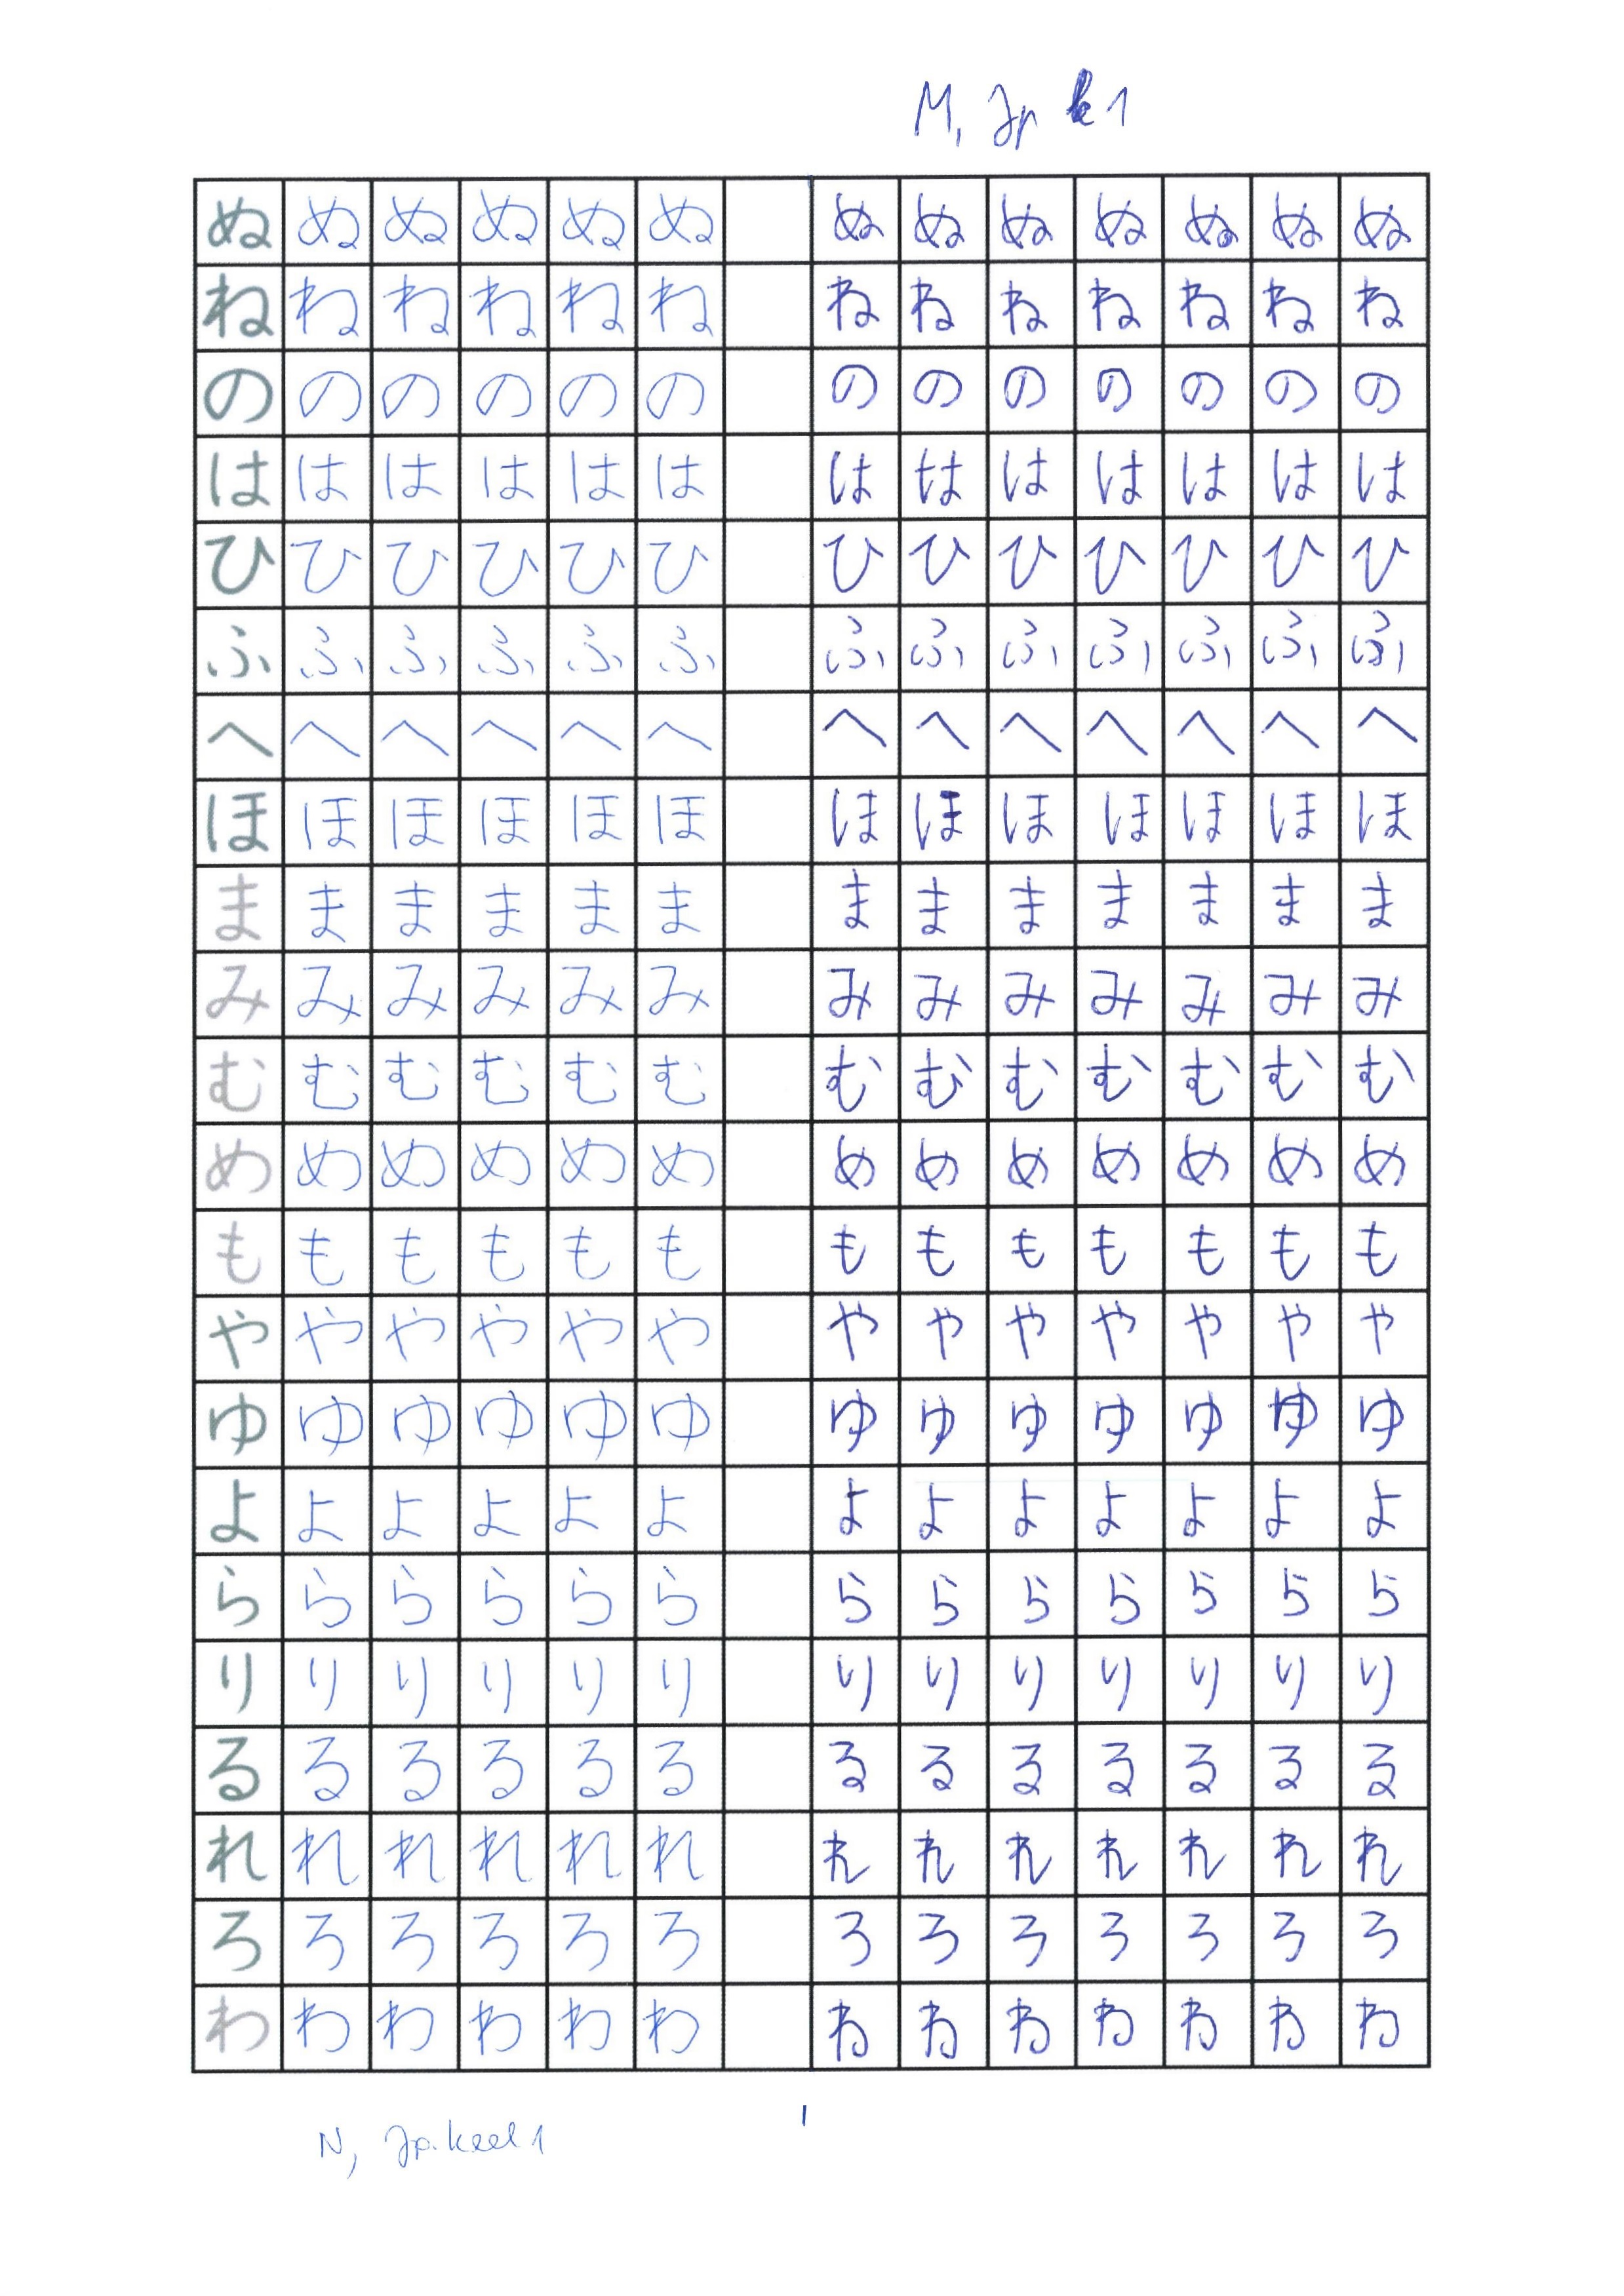 M, Jp k 1
ぬ ぬ ぬ ぬ ぬ ぬ ぬ ぬ ぬ ぬ ぬ ぬ ぬ
ね ね ね ね ね ね ね ね ね ね ね ね ね
の の の の の の の の の の の の の
は は は は は は は は は は は は は
ひ ひ ひ ひ ひ ひ ひ ひ ひ ひ ひ ひ ひ
ふ ふ ふ ふ ふ ふ ふ ふ ふ ふ ふ ふ ふ
へ へ へ へ へ へ へ へ へ へ へ へ へ
ほ ほ ほ ほ ほ ほ ほ ほ ほ ほ ほ ほ ほ
ま ま ま ま ま ま ま ま ま ま ま ま ま
み み み み み み み み み み み み み
む む む む む む む む む む む む む
め め め め め め め め め め め め め
も も も も も も も も も も も も も
や や や や や や や や や や や や や
ゆ ゆ ゆ ゆ ゆ ゆ ゆ ゆ ゆ ゆ ゆ ゆ ゆ
よ よ よ よ よ よ よ よ よ よ よ よ よ
ら ら ら ら ら ら ら ら ら ら ら ら ら
り り り り り り り り り り り り り
る る る る る る る る る る る る る
れ れ れ れ れ れ れ れ れ れ れ れ れ
ろ ろ ろ ろ ろ ろ ろ ろ ろ ろ ろ ろ ろ
わ わ わ わ わ わ わ わ わ わ わ わ わ
N, Jp. keel 1